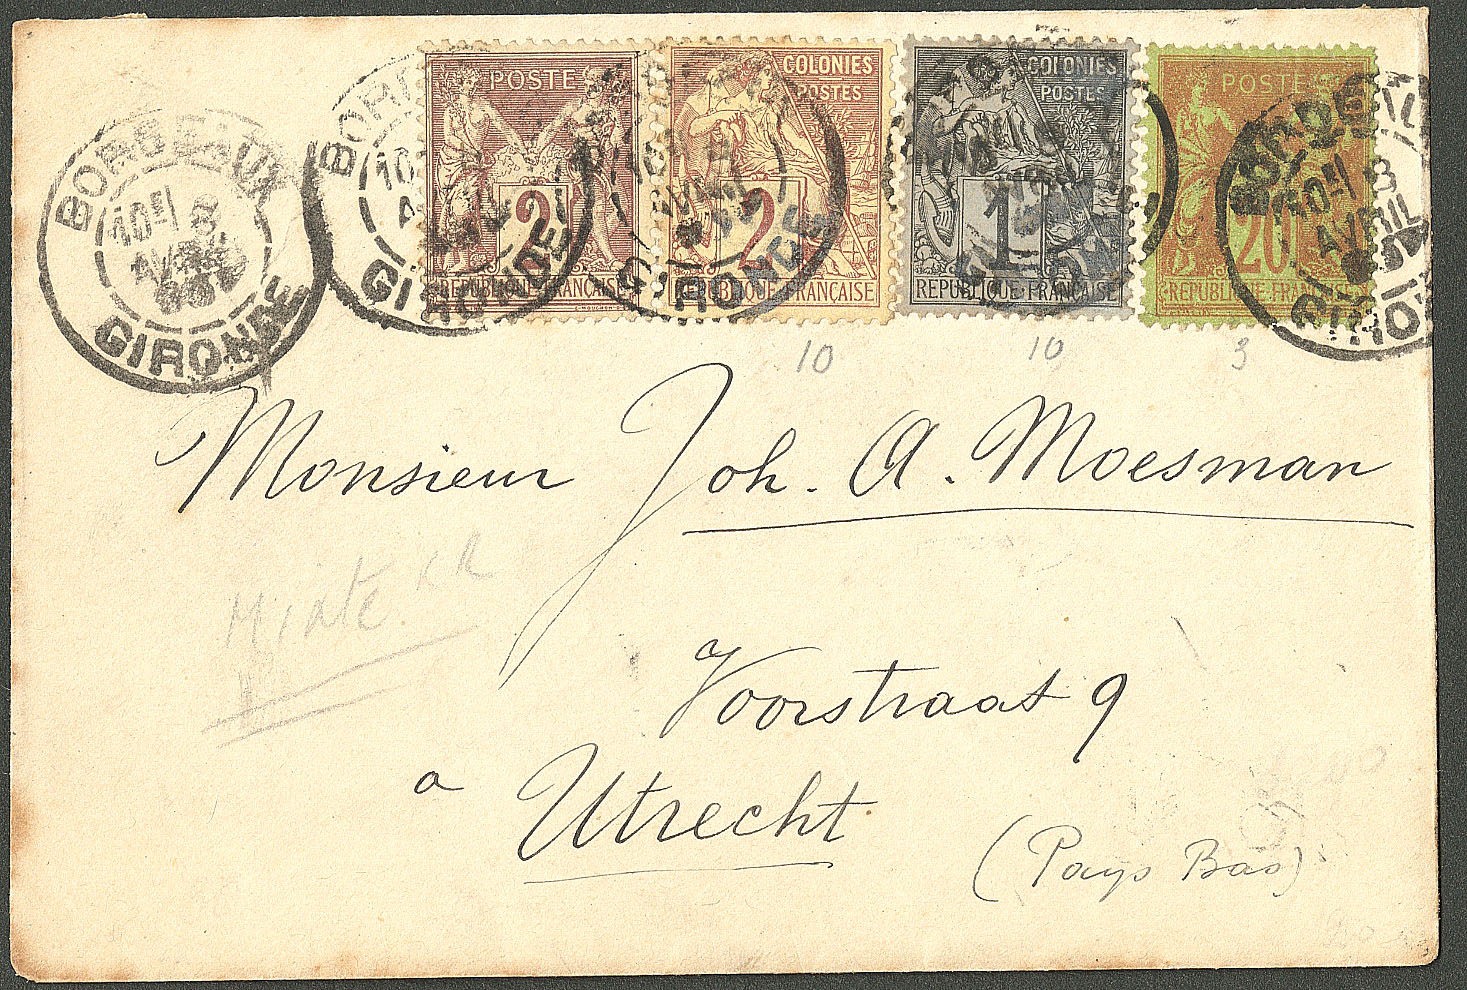 POSTE
2
REPUBLIQUE FRANÇAISE
COLONIES
POSTES
2
REPUBLIQUE FRANÇAISE
COLONIES
POSTES
1
REPUBLIQUE FRANÇAISE
POSTES
20
REPUBLIQUE FRANÇAISE
BORDEAUX
10E 8
AVRIL
GIRONDE
BORD
10
GIRONDE
GIRONDE
8
AVRIL
GIRO
10
10
3
Monsieur Joh. A. Moesman
Mixte. RR
Voorstraat 9
a Utrecht
(Pays Bas)